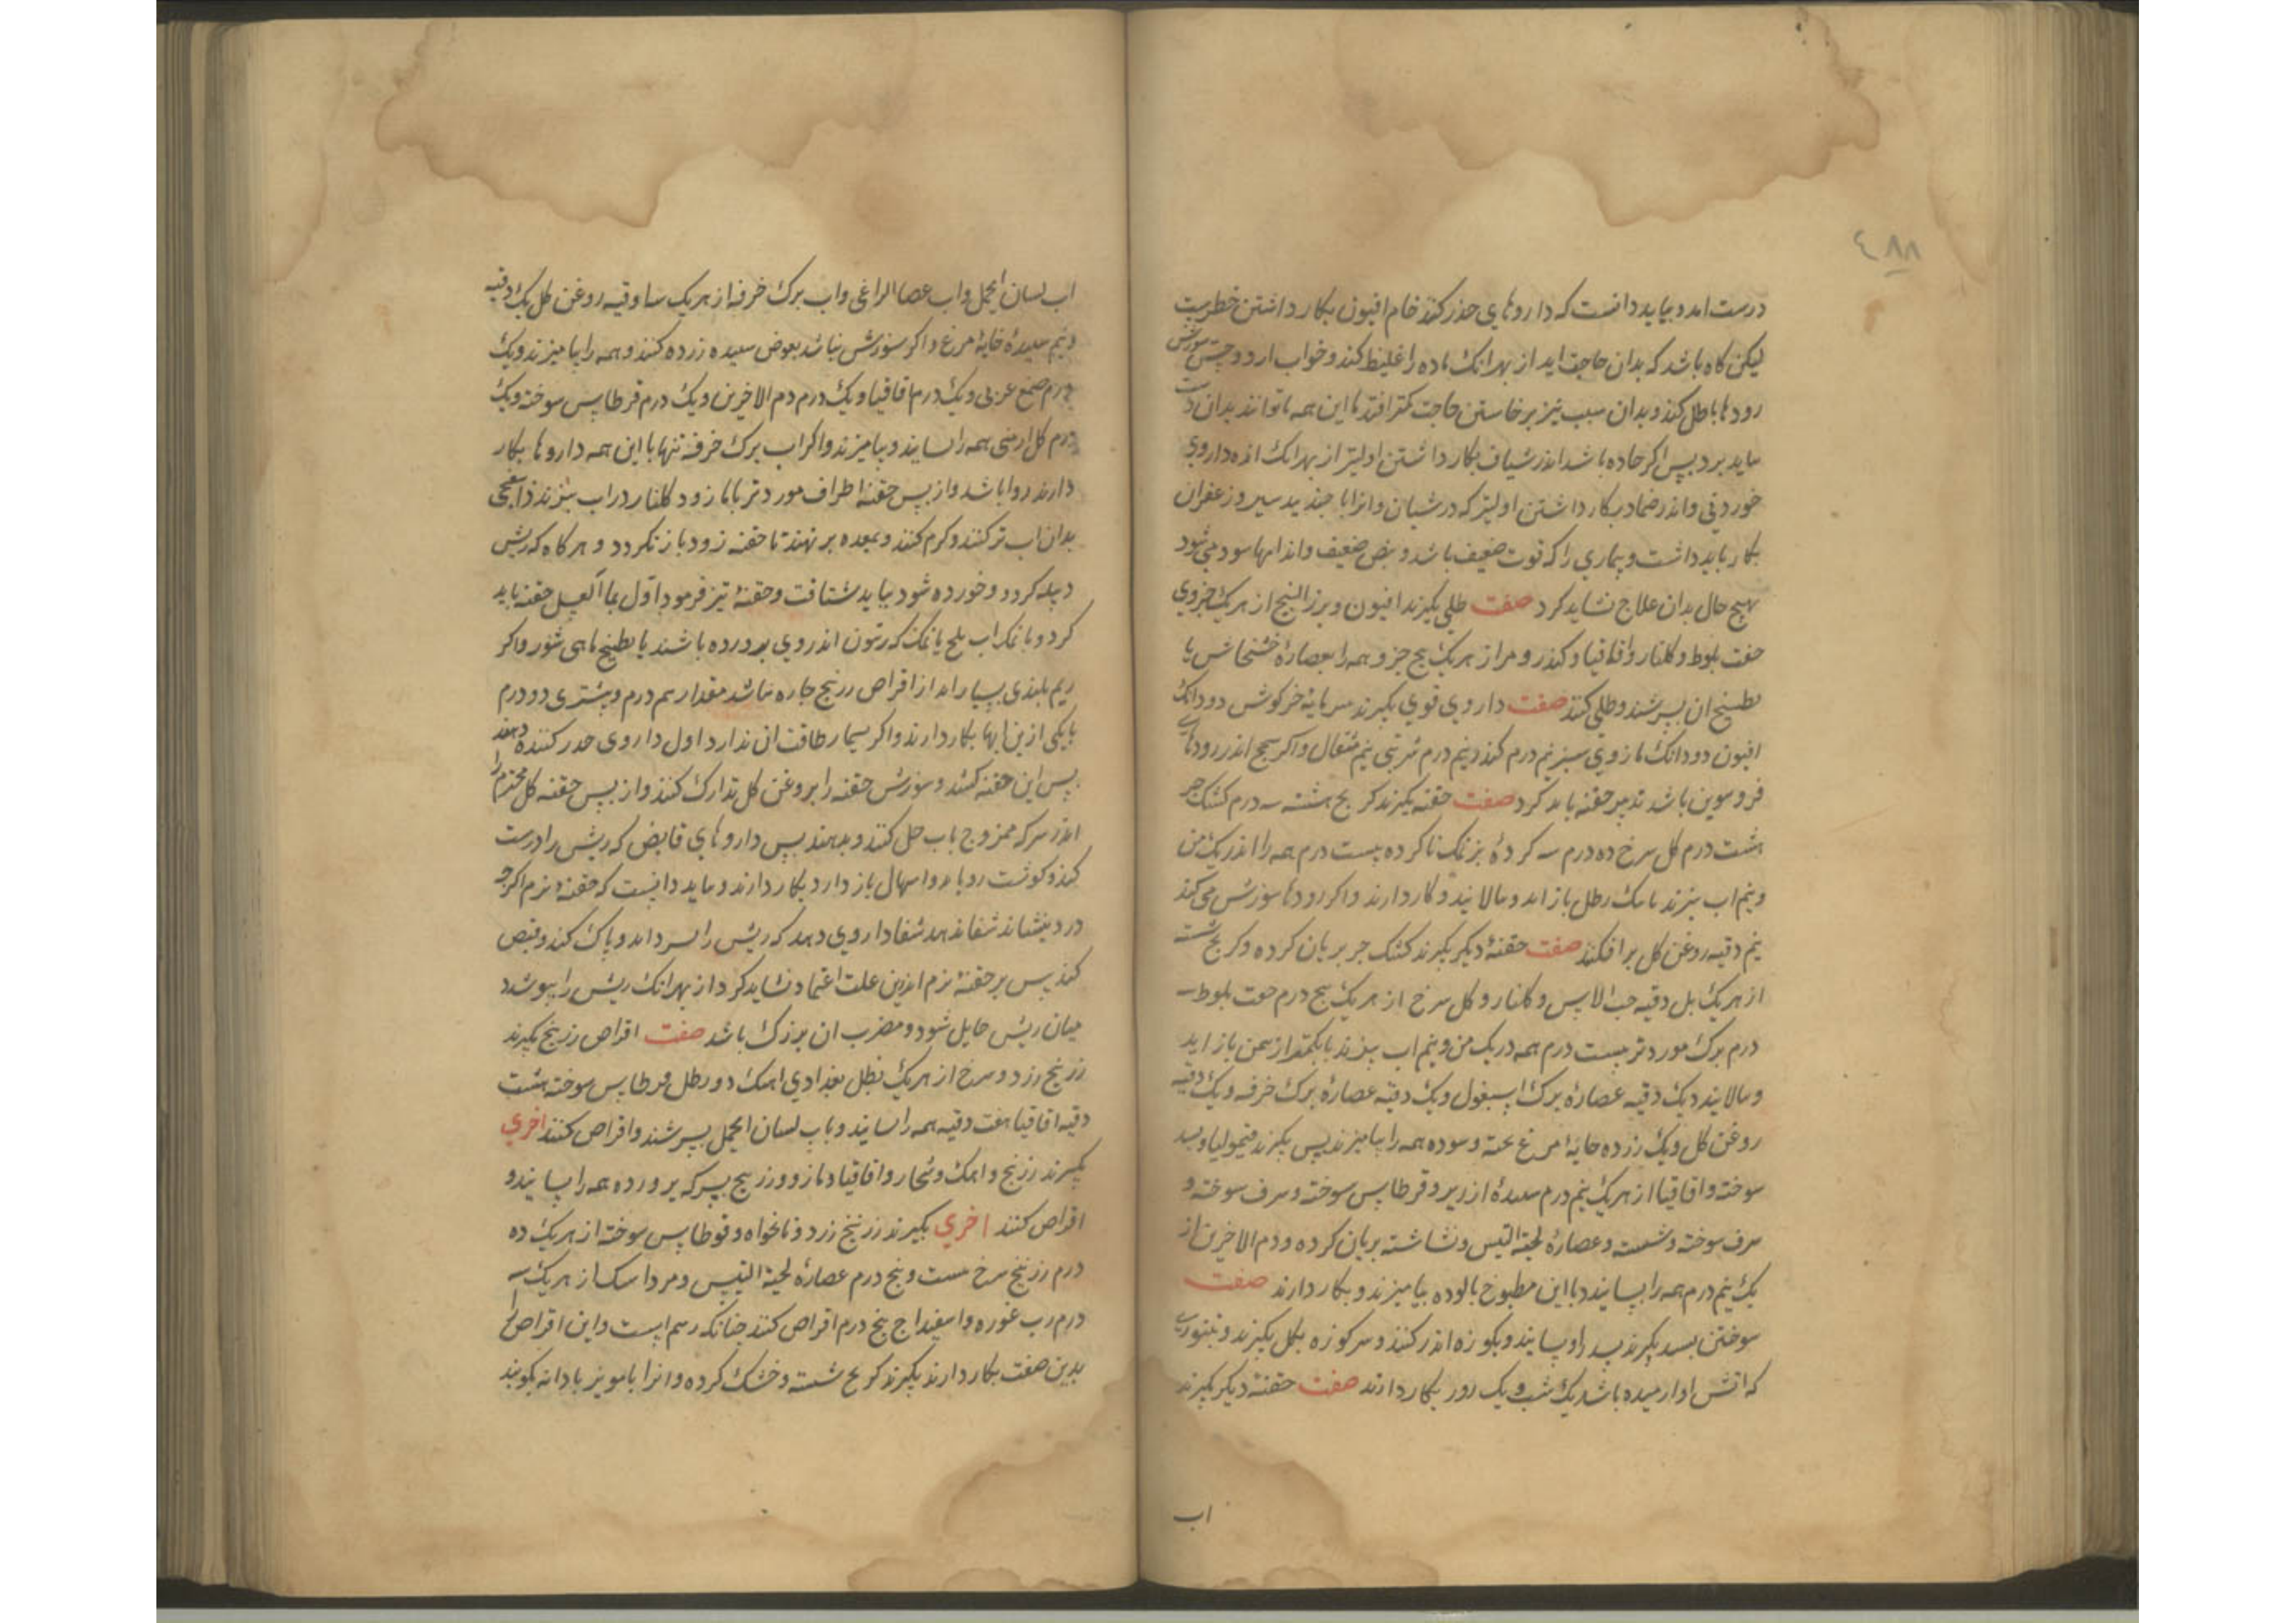 ٤٨٨
درست امد و بباید دانست که داروهای حذر کنند خام افیون بکار داشتن خطرست
لیکن کاه باشد که بدان حاجت اید از بهر انک ماده را غلیظ کند و خواب ارد و حس سوزش
رودها باطل کند و بدان سبب نیز برخاستن حاجت کمتر افتد با این همه تا توانند بدان دست
نباید برد پس اکر چاره باشد اندر شیاف بکار داشتن اولیتر از بهر انک اندر داروی
خوردنی و اندر ضماد بکار داشتن اولیتر که در شیاف و انرا با جند بیدستر و زعفران
بکار باید داشت و بیماری را که قوت ضعیف باشد و نبض ضعیف و اندامها سرد می شود
بهیچ حال بدان علاج نشاید کرد صفت طلی بکیرند افیون و بزر البنج از هر یک جزوی
جفت بلوط و کلنار و اقاقیا و کندر و مر از هر یک پنج جزو همه را بعصاره خشخاش یا
بطبیخ ان بسرشند و طلی کنند صفت داروی قوی بکیرند سرمایه خرکوش دو دانک
افیون دو دانک مازوی سبز نیم درم کندر نیم درم شربتی نیم مثقال و اکر سحج اندر رودهای
فروسوین باشد تدبیر حقنه باید کرد صفت حقنه بکیرند کرنج شسته سه درم کشک جو
هشت درم کل سرخ ده درم بیست درم همه را اندر یک من
و نیم اب بپزند تا یک رطل باز اید و بپالایند و بکار دارند و اکر رودها سوزش می کند
نیم وقیه روغن کل برافکنند صفت حقنه دیکر بکیرند کشک جو بریان کرده و کرنج شسته
از هر یک وقیه حب الاس و کلنار و کل سرخ از هر یک پنج درم جفت بلوط سه
درم برک مورد تر بیست درم همه در یک من و نیم اب بپزند تا بمقدار نیم من باز اید
و بپالایند و یک وقیه عصاره برک اسبغول و یک وقیه عصاره برک خرفه و یک وقیه
روغن کل و یک زرده خایه مرغ پخته و سوده همه را بیامیزند پس بکیرند قیمولیا و بسد
سوخته و اقاقیا از هر یک نیم درم سپیده ارزیز و قرطاس سوخته و
سوخته و شسته و عصاره لحیة التیس و نشاشته بریان کرده و دم الاخوین از
یک نیم درم همه را بسایند و با این مطبوخ پالوده بیامیزند و بکار دارند صفت
سوختن بسد بکیرند بسد را و بسایند و بکوزه اندر کنند و سر کوزه بکل بکیرند و بتنوری
که اتش او ارمیده باشد یک شب و یک روز بکار دارند صفت حقنه دیکر بکیرند
اب
اب لسان الحمل و اب عصا الراعی و اب برک خرفه از هر یک وقیه روغن کل یک وقیه
و نیم سپیده خایه مرغ و اکر سوزش نباشد بعوض سپیده زرده کنند و همه را بیامیزند و یک
درم صمغ عربی و یک درم اقاقیا و یک درم دم الاخوین و یک درم قرطاس سوخته و یک
درم کل ارمنی همه را بسایند و بیامیزند و اکر اب برک خرفه تنها با این همه داروها بکار
دارند روا باشد و از پس حقنه اطراف مورد تر با مازو و کلنار در اب بپزند و اسفنجی
بدان اب تر کنند و کرم کنند و بمعده بر نهند تا حقنه زود باز نکردد و هر کاه که ریش
دبیله کردد و خورده شود بباید شتافت و حقنه تیز فرمود اول بماء العسل حقنه باید
کرد و با نمکاب تلخ یا نمک که زیتون اندر وی پرورده باشند یا بطبیخ ماهی شور و اکر
ریم پلیدی بسیار اید از اقراص زرنیخ چاره نباشد مقدار سه درم و بیشتری دو درم
با یکی ازین ابها بکار دارند و اکر بیمار طاقت ان ندارد اول داروی خدر کننده دهند
پس این حقنه کنند و سوزش حقنه را بروغن کل تدارک کنند و از پس حقنه کل مختوم را
اندر سرکه ممزوج باب حل کنند و بدهند پس داروهای قابض که ریش را درست
کند و کوشت رویاند و اسهال باز دارد بکار دارند و بباید دانست که حقنه نرم اکرچه
درد بنشاند شفا ندهد شفا داروی دهد که ریش را بسرداند و پاک کند و قبض
کند پس بر حقنه نرم اندرین علت اعتماد نشاید کرد از بهر انک ریش را بپوشد و
میان ریش حایل شود و مضرت ان بزرک باشد صفت اقراص زرنیخ بکیرند
زرنیخ زرد و سرخ از هر یک بطل بغدادی اهک دو رطل قرطاس سوخته هشت
وقیه اقاقیا هفت وقیه همه را بسایند و باب لسان الحمل بسرشند و اقراص کنند اخری
بکیرند زرنیخ و اهک و شخار و اقاقیا و مازو و زرنیخ بسرکه پرورده همه را بسایند و
اقراص کنند اخری بکیرند زرنیخ زرد و نانخواه و قرطاس سوخته از هر یک ده
درم زرنیخ سرخ بیست و پنج درم عصاره لحیة التیس و مرداسنک از هر یک سه
درم رب غوره و اسفیداج پنج درم اقراص کنند چنانکه رسم است و این اقراص را
بدین صفت بکار دارند بکیرند کرنج شسته و خشک کرده و انرا با مویز با دانه بکوبند